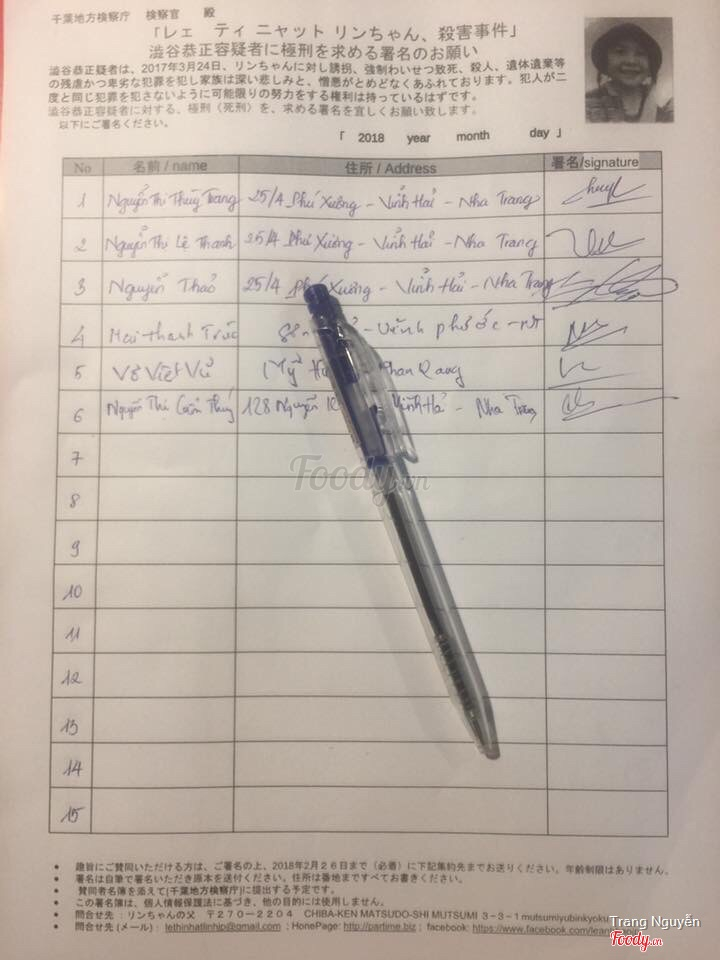 千葉地方検察庁 検察官 殿
「レェ ティ ニャット リンちゃん、殺害事件」
澁谷恭正容疑者に極刑を求める署名のお願い
澁谷恭正容疑者は、2017年3月24日、リンちゃんに対し誘拐、強制わいせつ致死、殺人、遺体遺棄等
の残虐かつ卑劣な犯罪を犯し家族は深い悲しみと、憎悪がとめどなくあふれております。犯人が二
度と同じ犯罪を犯さないように可能限りの努力をする権利は持っているはずです。
澁谷恭正容疑者に対する、極刑〈死刑〉を、求める署名を宜しくお願い致します。
以下にご署名ください。
「 2018 year month day 」
No 名前 / name 住所 / Address 署名/signature
1 Nguyễn Thị Thùy Trang 25/4 Phú Xương - Vĩnh Hải - Nha Trang
2 Nguyễn Thị Lệ Thanh 25/4 Phú Xương - Vĩnh Hải - Nha Trang
3 Nguyễn Thảo 25/4 Phú Xương - Vĩnh Hải - Nha Trang
4 Mai Thanh Trúc - Vĩnh phước - NT
5 Võ Việt Vũ Mỹ Phan Rang
6 Nguyễn Thị Cẩm Thúy 128 Nguyễn Vĩnh Hả - Nha Trang
7
8
9
10
11
12
13
14
15
Foody.vn
• 趣旨にご賛同いただける方は、ご署名の上、2018年2月26日まで（必着）に下記集約先までお送りください。年齢制限はありません。
• 署名は自筆で署名いただき原本を送付ください。住所は番地まですべてお書きください。
• 賛同者名簿を添えて(千葉地方検察庁)に提出する予定です。
• この署名簿は、個人情報保護法に基づき、他の目的には使用しません。
• 問合せ先：リンちゃんの父 〒270－2204 CHIBA-KEN MATSUDO-SHI MUTSUMI 3－3－1 mutsumiyubinkyoku
• 問合せ先 (メール)： lethinhatlinhjp@gmail.com ; HonePage: http://partime.biz ; facebook: https://www.facebook.com/lean
Trang Nguyễn
Foody.vn